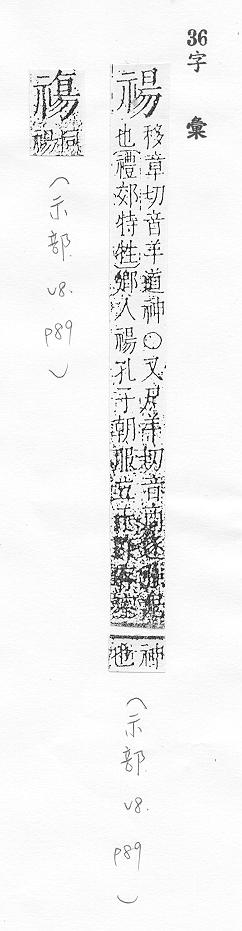 36
字彙
禓
移章切音羊道神○又尸羊切音商
也禮郊特牲鄉人禓孔子朝服立
神
也
(示部. v8. p89)
禓
禓
(示部. v8. p89)